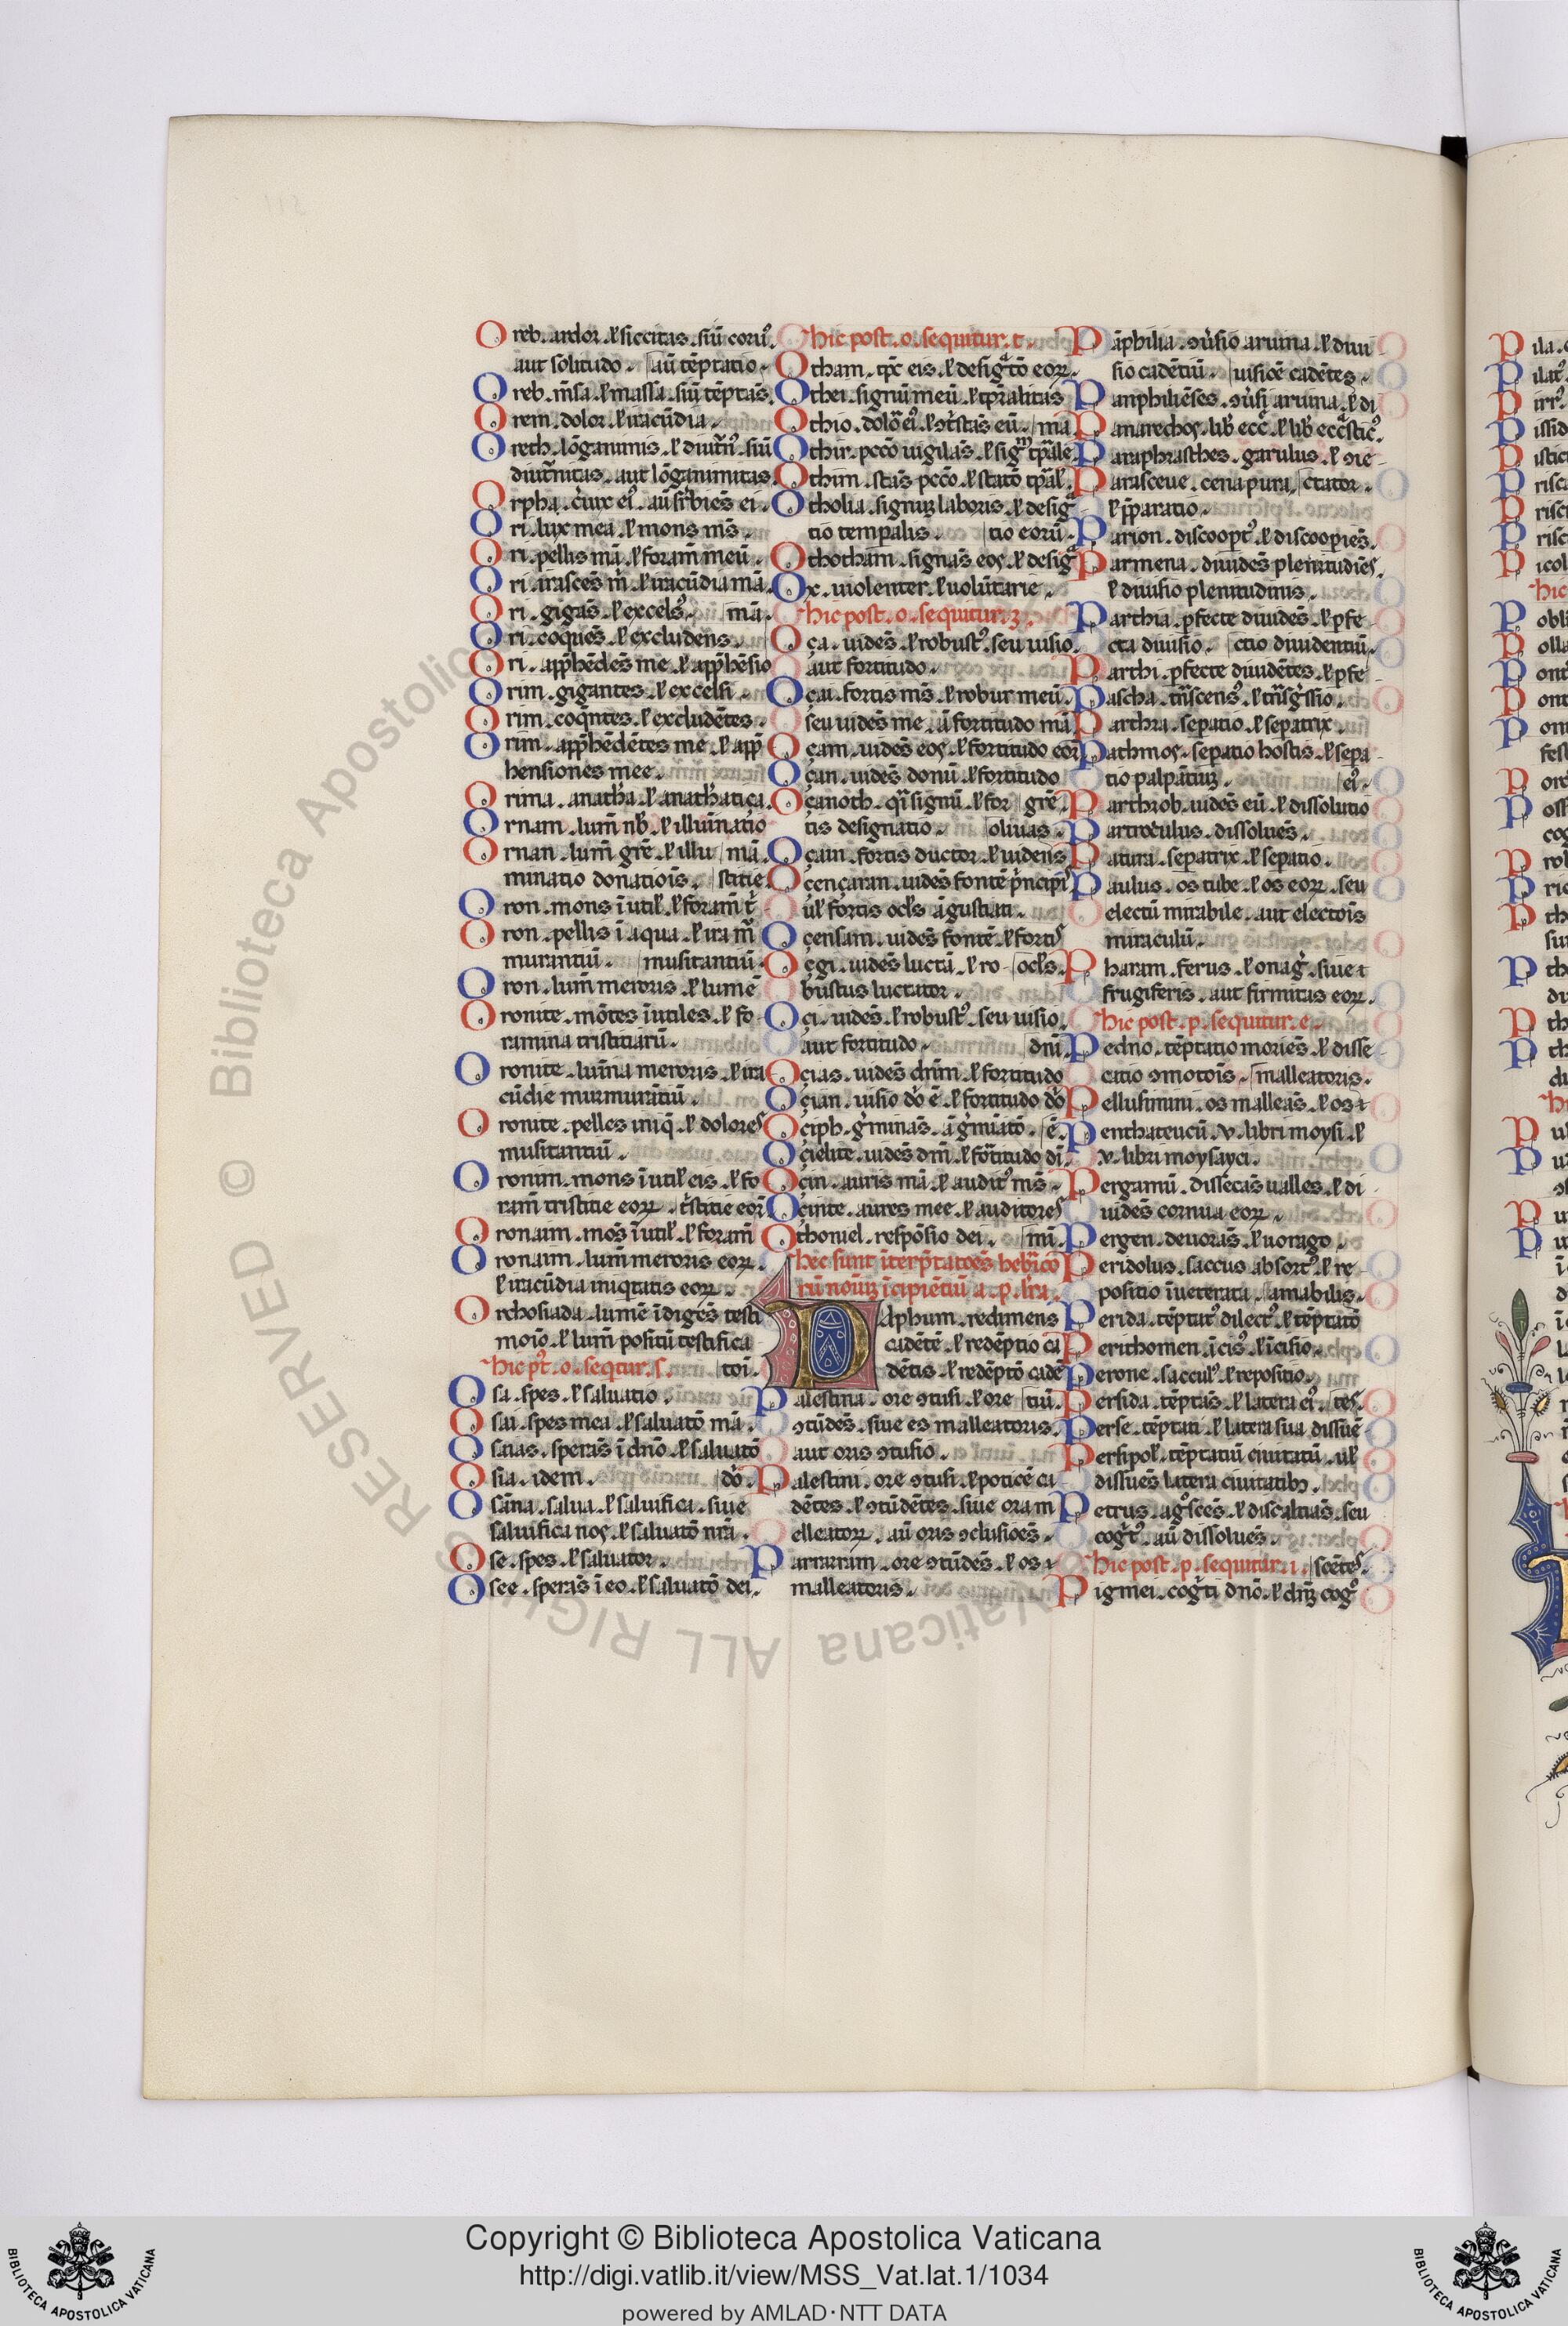 Oreb. ardor. ł siccitas. siū corũ.
aut solitudo. aũ tẽptatio.
Oreb. m̃sa. ł massa. siũ tẽptãs.
Orem. dolor. ł iracũdia.
Oreth. lõganimis. ł diut̃n̾. siũ
diut̃nitas. aut lõganimitas.
Orpha. c̾uix ei̾. aũ sr̃bies̃ ei.
Ori. lux mea. ł mons m̃s.
Ori. pellis mã. ł foram̃ meũ.
Ori. irasces̃ m̾. ł iracũdia mã.
Ori. gigãs. ł excels̾. mã.
Ori. coques̃. ł excludens.
Ori. app̃hẽdes̃ me. ł app̃hẽsio
Orim. gigantes. ł excelsi.
Orim. coq̃ntes. ł excludẽtes.
Orim. app̃hẽdẽtes me. ł app̃
hensiones mee.
Orima. anath̾a. ł anath̾atiça.
Ornam. lum̃ nb̾. ł illuĩnatio
Ornan. lum̃ grẽ. ł illu mã.
minatio donatiois̃. stitie
Oron. mons ĩutil̾. ł foram̃ t̾
Oron. pellis ĩ aqua. ł ira m̃
murantiũ. musitantiũ.
Oron. lum̃ meroris. ł lumẽ
Oronite. mõtes ĩutiles. ł fo
ramina tristitiarũ.
Oronite. luĩna meroris. ł ira
cũdie murmurãtiũ.
Oronite. pelles iniq̃. ł dolores
musitantiũ.
Oronim. mons ĩutil̾ eis. ł fo
ram̃ tristitie eoꝝ. t̾stitie eor̃
Oronaim. mos̃ ĩutil̾. ł foram̃
Oronaim. lum̃ meroris eoꝝ.
ł iracũdia iniqtatis eoꝝ.
Orchosiada. lumẽ ĩdiges̃ testi
moio̾. ł lum̃ positũ testifica
hic pt̾. o. seq̃tur. s. toĩ.
Osa. spes. ł saluatio.
Osai. spes mea. ł saluatõ mã.
Osaias. speras̃ ĩ dño. ł saluatõ
Osia. idem. dõ.
Osãna. salua. ł saluifica. siue
saluifica nos. ł saluatõ nr̃a.
Ose. spes. ł saluator.
Osee. speras̃ ĩ eo. ł saluatõ dei.
hic post. o. sequitur. t.
Otham. tp̃c eis. ł desigᵃtõ eoꝝ.
Othei. signũ meũ. ł tp̃ralitas
Othio. dolõ ei̾. ł ꝯt̾stas̃ eũ. mã
Othir. pccõ uigilas̃. ł sigᵐ tp̃ale
Othim. stas̃ pccõ. ł statõ tp̃al̾.
Otholia. signuꝫ laboris. ł desigᵃ
tio tempalis. tio eorũ.
Othotham. signas̃ eos. ł desigᵃ
Ox. uiolenter. ł uolũtarie.
hic post. o. sequitur. ꝫ.
Oça. uides̃. ł robust̾. seu uisio.
aut fortitudo.
Oçai. fortis m̃s. ł robur meũ.
seu uides̃ me. ã fortitudo mã
Oçam. uides̃ eos. ł fortitudo eor̃
Oçan. uides̃ donũ. ł fortitudo
Oçanoth. q̃i signũ. ł for grẽ.
tis designatio. oliuas.
Oçain. fortis ductor. ł uidens
Oçençaran. uides̃ fontẽ p̃ncipĩ
ul̾ fortis ocl̾s ãgustiati.
Oçensam. uides̃ fontẽ. ł fortis
Oçegi. uides̃ luctã. ł ro ocl̾s.
bustus luctator.
Oçi. uides̃. ł robust̾. seu uisio.
aut fortitudo. dnĩ.
Oçias. uides̃ dñm. ł fortitudo
Oçian. uisio dõ ẽ. ł fortitudo dõ
Oçiph. g̾minas̃. ã g̾miatõ. ẽ.
Oçielite. uides̃ dm̃. ł fortitudo dĩ.
Oçin. auris mã. ł audit̾ m̃s.
Oçinite. aures mee. ł auditores
Othoniel. respõsio dei. mĩ.
hec sunt ĩterp̃tatoẽs hebrᵃico
rũ noĩuꝫ ĩcipiẽtiũ a. p. lr̃a.
Palphum. redimens
cadẽtẽ. ł redẽptio ca
dẽtis. ł redẽptõ cadẽ
Palestina. ore ꝯtusi. ł ore tiũ.
ꝯtũdes̃. siue es malleatoris.
aut oris ꝯtusio.
Palestini. ore ꝯtusi. ł poticẽ ca
dẽtes. ł ꝯtũdẽtes. siue ora m
elleatoꝝ. aũ oris ꝯclusiões̃.
Parrarum. ore ꝯtũdes̃. ł os
malleatoris.
Pãphilia. ꝯũsio aruina. ł diui
sio cadẽtiũ. uisiõe cadẽtes.
Panphiliẽses. ꝯũsi aruina. ł di
Panarechos. lib̾ ecc̾. ł lib̾ ecc̾stic̾.
Paraphrasthes. garulus. ł ꝯie
Parasceue. cena pura. ctator.
ł p̃paratio.
Parion. discoopt̾. ł discoopies̃.
Parmena. diuides̃ plenitudies̃.
ł diuisio plenitudinis.
Parthia. pfecte diuides̃. ł pfe
cta diuisio. ctio diuidentiũ.
Parthi. pfecte diuidẽtes. ł pfe
Pascha. trã̃scens̾. ł trãsg̾ssio.
Parthia. sepatio. ł sepatrix.
Pathmos. sepatio hostis. ł sepa
tio palpãtiuꝫ. ei̾.
Parthrob. uides̃ eũ. ł dissolutio
Partroculus. dissolues̃.
Patura. sepatrix. ł sepatio.
Paulus. os tube. ł os eoꝝ. seu
electũ mirabile. aut electois̃
miraculũ.
Pharam. ferus. ł onag̾. siue
frugiferis. aut firmitas eoꝝ.
hic post. p. sequitur. e.
Pedno. tẽptatio mories̃. ł disse
catio ꝯmotois̃. malleatoris.
Pellusimini. os malleas̃. ł os
Penthateucũ. v. libri moysi. ł
v. libri moysayci.
Pergamũ. dissecas̃ ualles. ł di
uides̃ cornua eoꝝ.
Pergen. deuoras̃. ł uorago.
Peridolus. saccus absort̾. ł re
positio ĩueterata. amabilis.
Perida. tẽptat̾ dilect̾. ł tẽptatõ
Perithomen. ĩcis̾. ł ĩcisio.
Perone. saccul̾. ł repositio.
Persida. tẽptas̃. ł latera ei̾. tes.
Perse. tẽptati. ł latera sua dissuẽ
Persipol̾. tẽptatiũ ciuitatũ. ul̾
dissues̃ latera ciuitatibꝫ.
Petrus. ag̾sces̃. ł discaltias̃. seu
cog̾t̾. aũ dissolues̃.
hic post. p. sequitur. i. scẽtes.
Pigmei. cog̾ti dnõ. ł dñꝫ cog̾
Copyright © Biblioteca Apostolica Vaticana
http://digi.vatlib.it/view/MSS_Vat.lat.1/1034
powered by AMLAD·NTT DATA
BIBLIOTECA APOSTOLICA VATICANA
BIBLIOTECA APOSTOLICA VATICANA